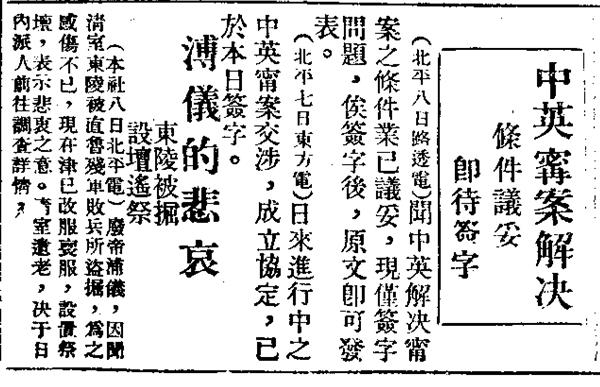 中英寗案解决
條件議妥
卽待簽字
(北平八日路透電)聞中英解决寗
案之條件業已議妥,現僅簽字
問題,俟簽字後,原文卽可發
表。
(北平七日東方電)日來進行中之
中英寗案交涉,成立協定,已
於本日簽字。
溥儀的悲哀
東陵被掘
設壇遙祭
(本社八日北平電)廢帝溥儀,因聞
淸室東陵被直魯殘軍敗兵所盜掘,爲之
感傷不已,現在津已改服喪服,設價祭
壞,表示悲哀之意。淸室遺老,决于日
內派人前往調查詳情,